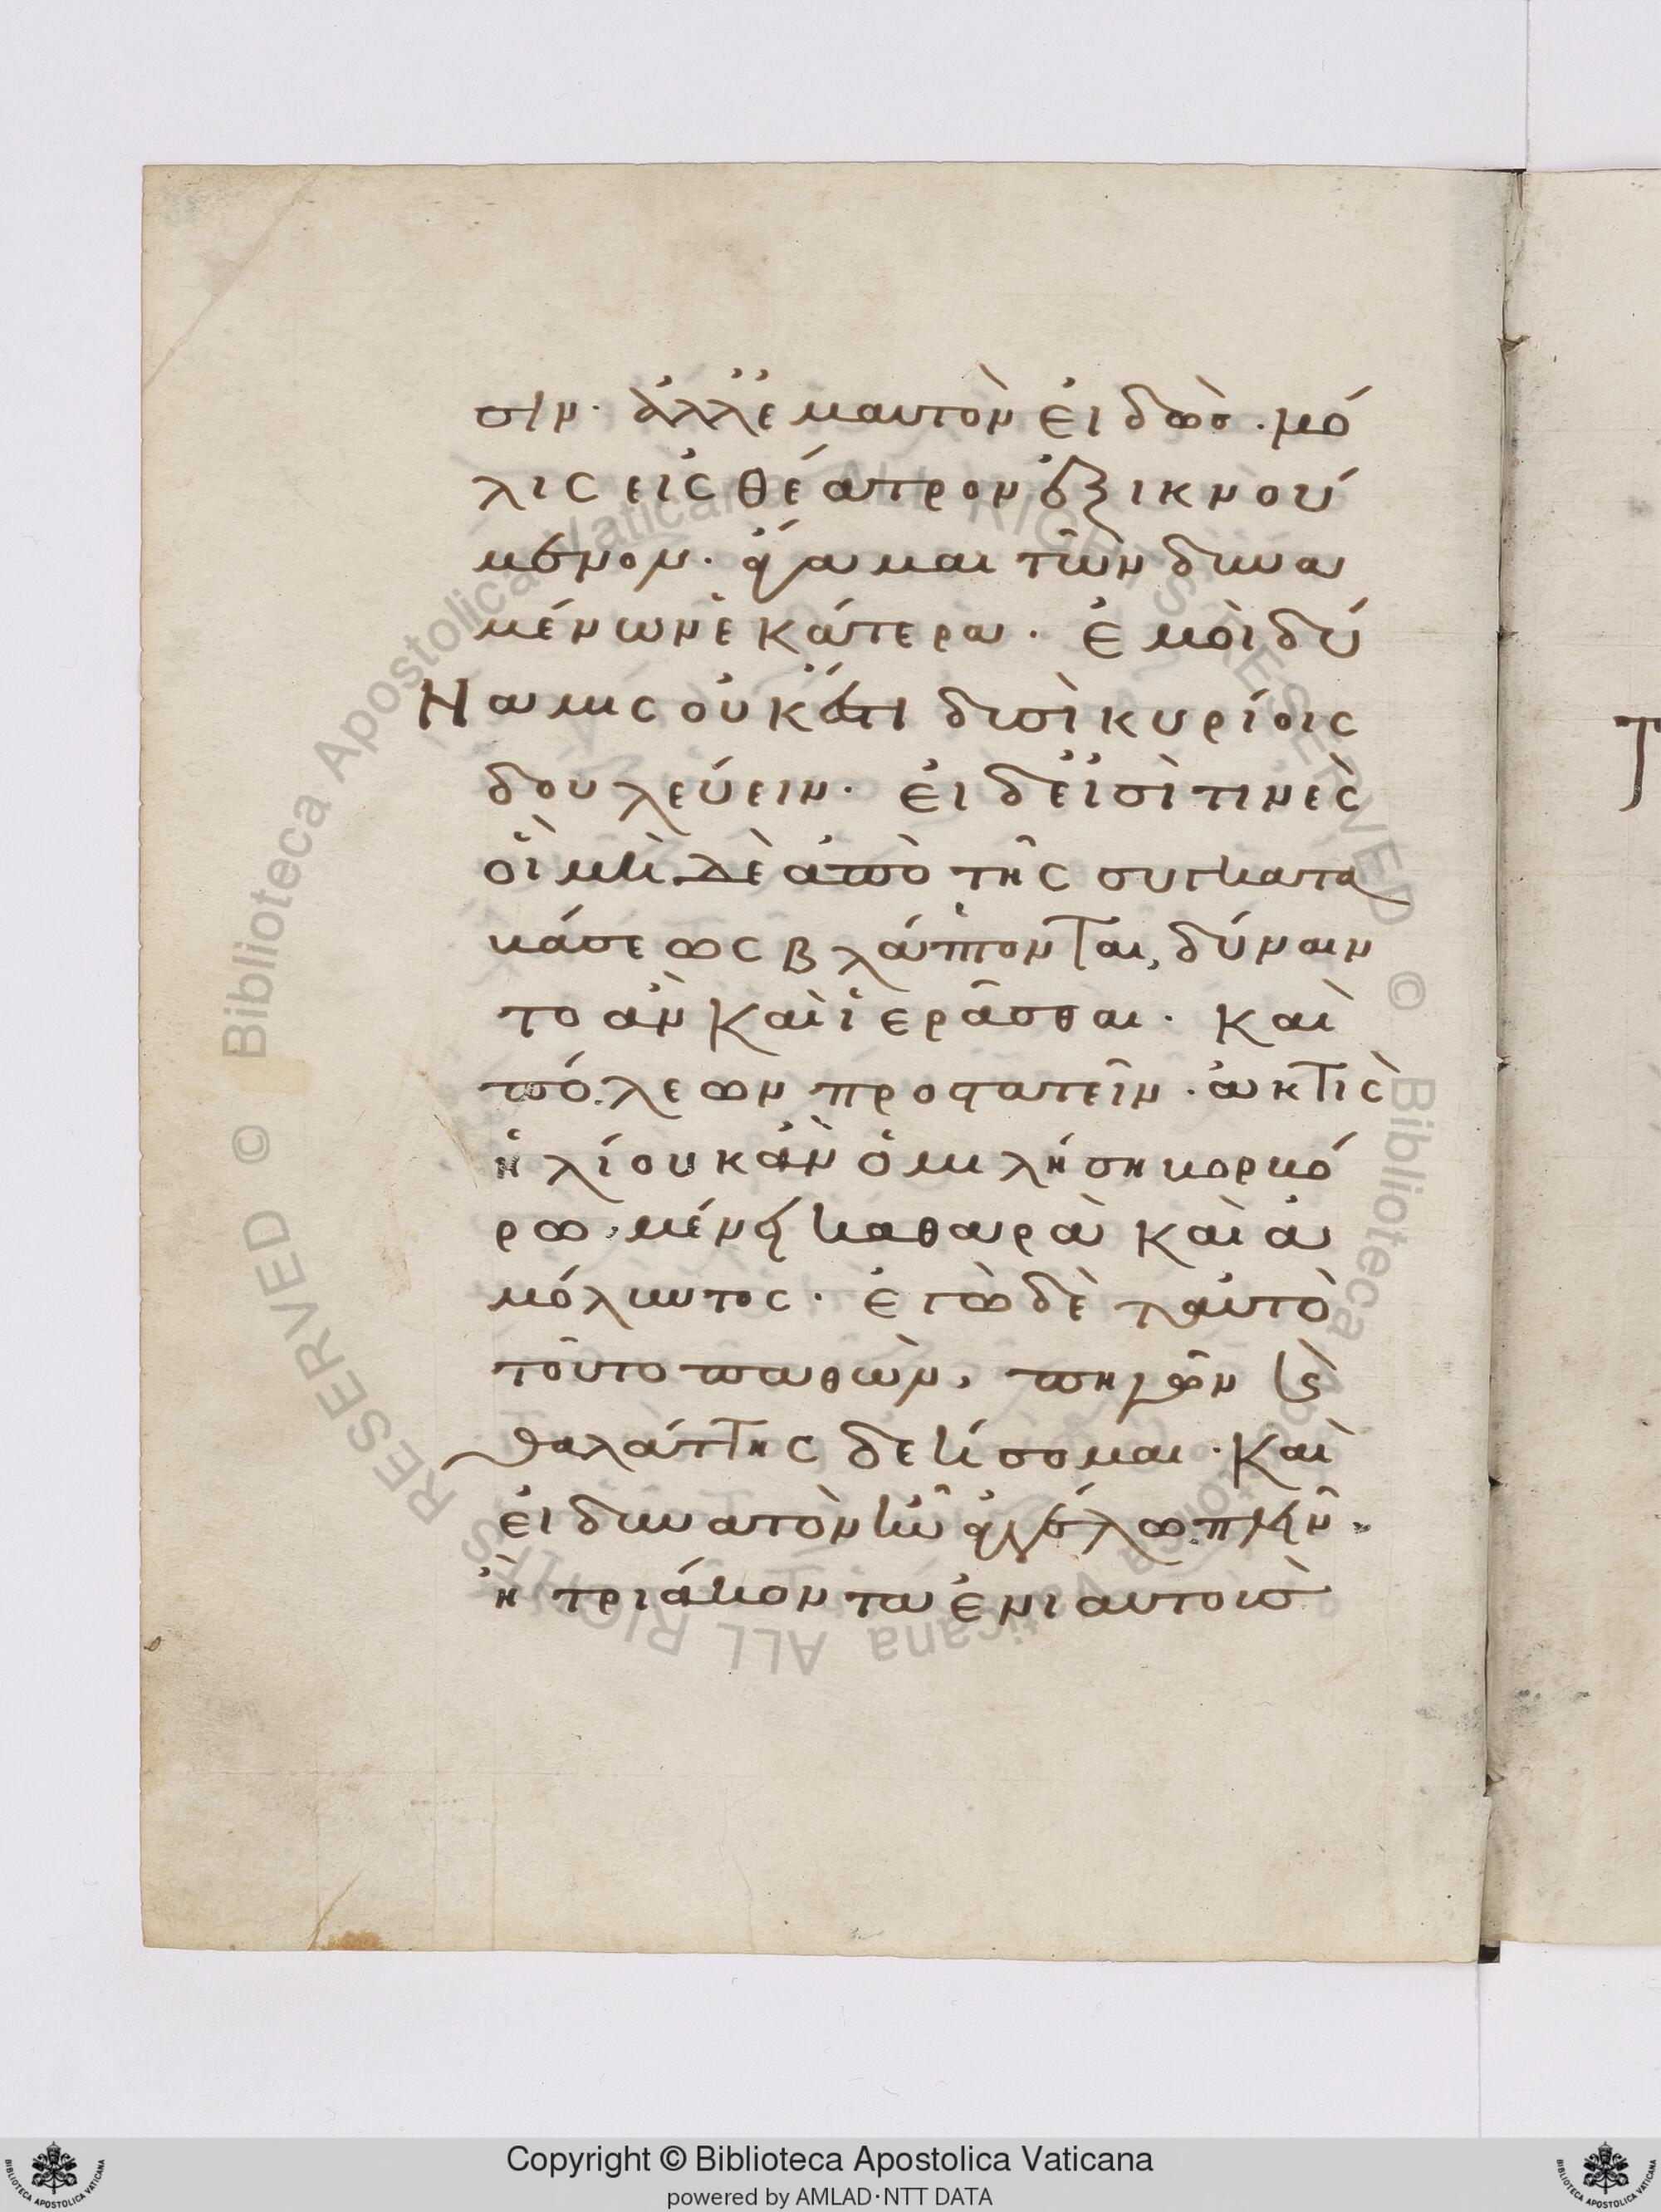 σιν· ἀλλ' ἐμαυτὸν εἰδὼς. μό
λις εἰς θέατρον ἐξικνού
μενον. ἄγαμαι τῶν δυνα
μένων ἑκάτερα. ἐμοὶ δύ
ναμις οὐκ ἔστι δυσὶ κυρίοις
δουλεύειν. εἰ δ' εἰσὶ τινὲς
οἳ μὴ δὲ ἀπὸ τῆς συγκατα
βάσεως βλάπτονται, δύναιν
το ἂν καὶ ἱερᾶσθαι. καὶ
πόλεων προστατεῖν. ἀκτὶς
ἡλίου κἂν ὁμιλήση βορβό
ρω, μένει καθαρὰ καὶ ἀ
μόλυντος. ἐγὼ δὲ ταὐτὸ
τοῦτο παθὼν, πηγῶν καὶ
θαλάττης δεήσομαι. καὶ
εἰ δυνατὸν ἦν ἀγγέλω πλεῖν.
ἢ τριάκοντα ἐνιαυτοῖσ
Copyright © Biblioteca Apostolica Vaticana
powered by AMLAD·NTT DATA